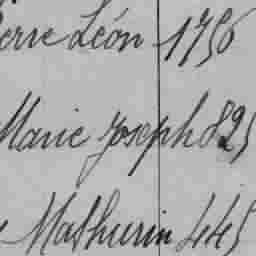 ierre Léon 1756
Marie Joseph 825
Mathurin 445